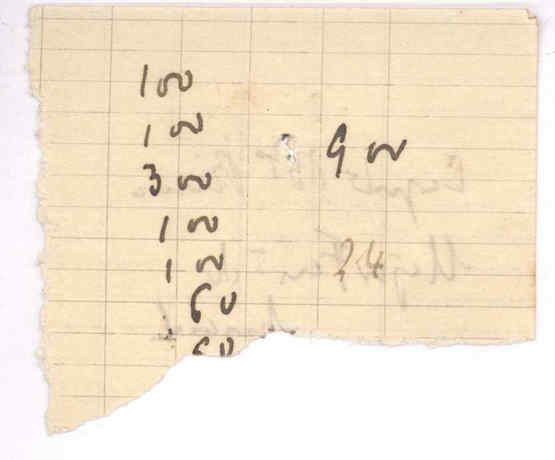 100
100
300
100
100
60
60
900
24